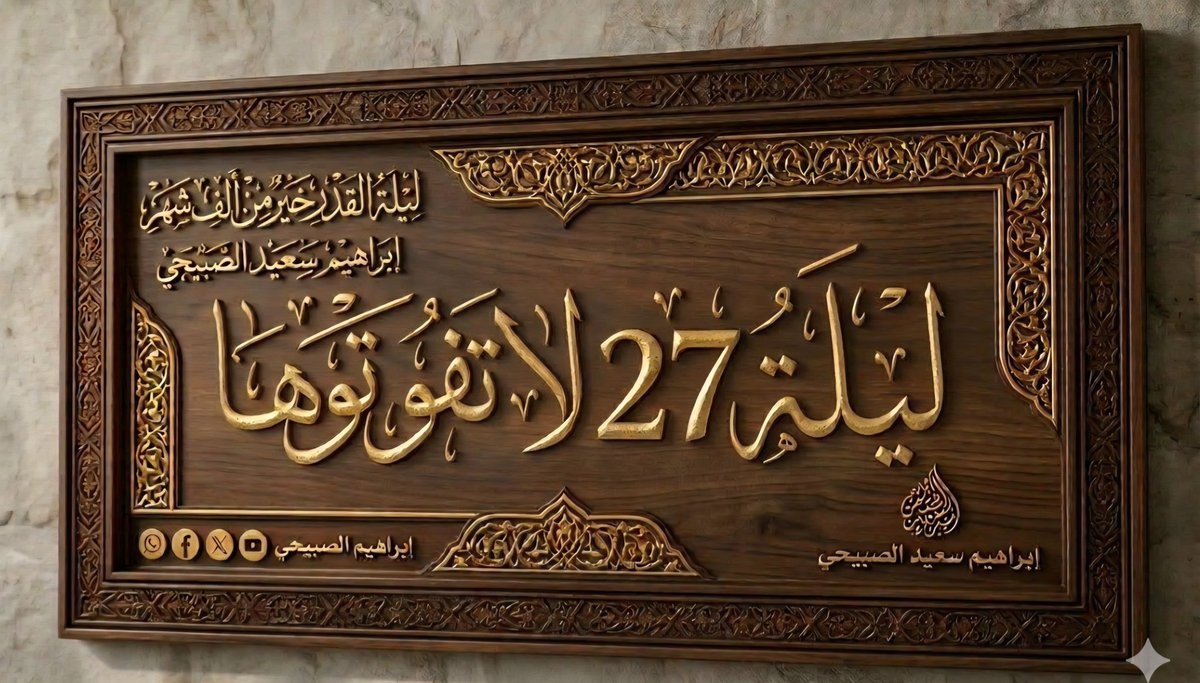 لَيْلَةُ القَدْرِ خَيْرٌ مِنْ أَلْفِ شَهْرٍ
إبراهيم سعيد الصبيحي
ليلة 27 لا تفوتوها
إبراهيم سعيد الصبيحي
إبراهيم الصبيحي